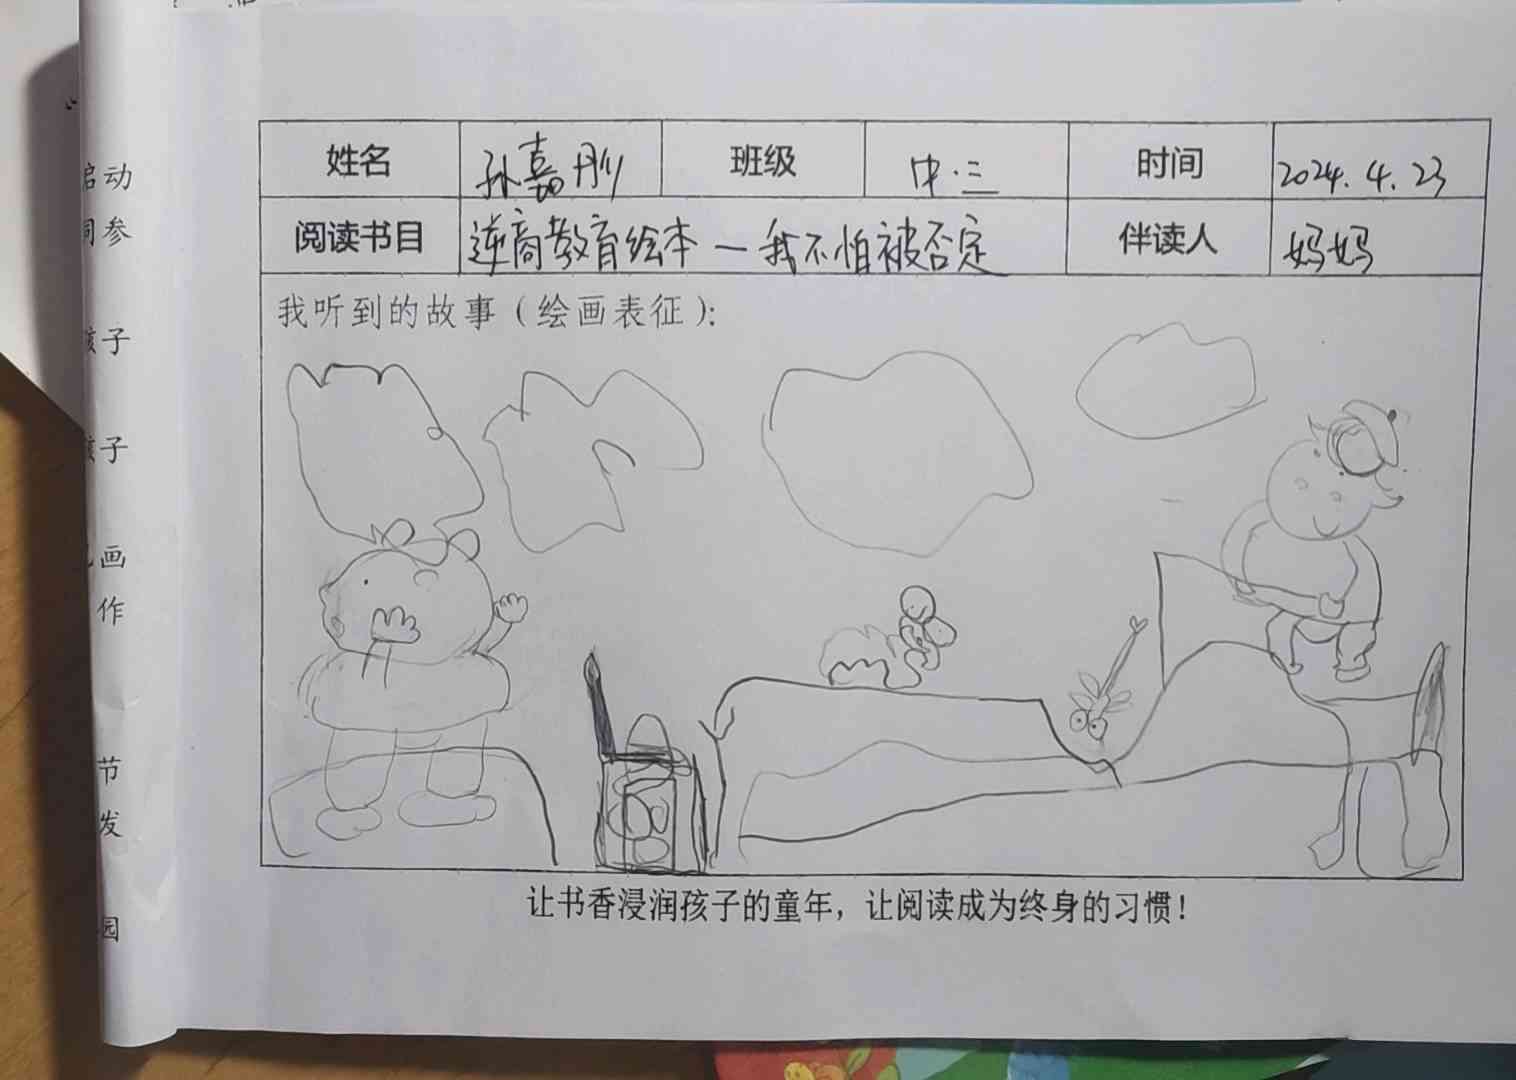 启动
同参
孩子
孩子
画
作
节
发
园
姓名 孙嘉彤 班级 中.三 时间 2024.4.23
阅读书目 逆商教育绘本－我不怕被否定 伴读人 妈妈
我听到的故事（绘画表征）：
让书香浸润孩子的童年，让阅读成为终身的习惯！